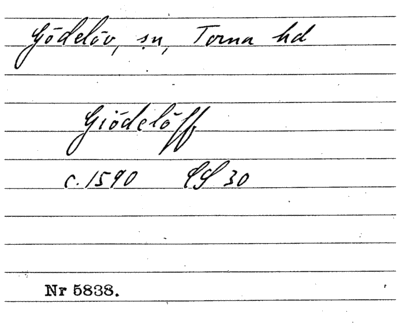 Gödelöv, sn, Torna hd
Giödelöff
c. 1590 LS 30
Nr 5838.